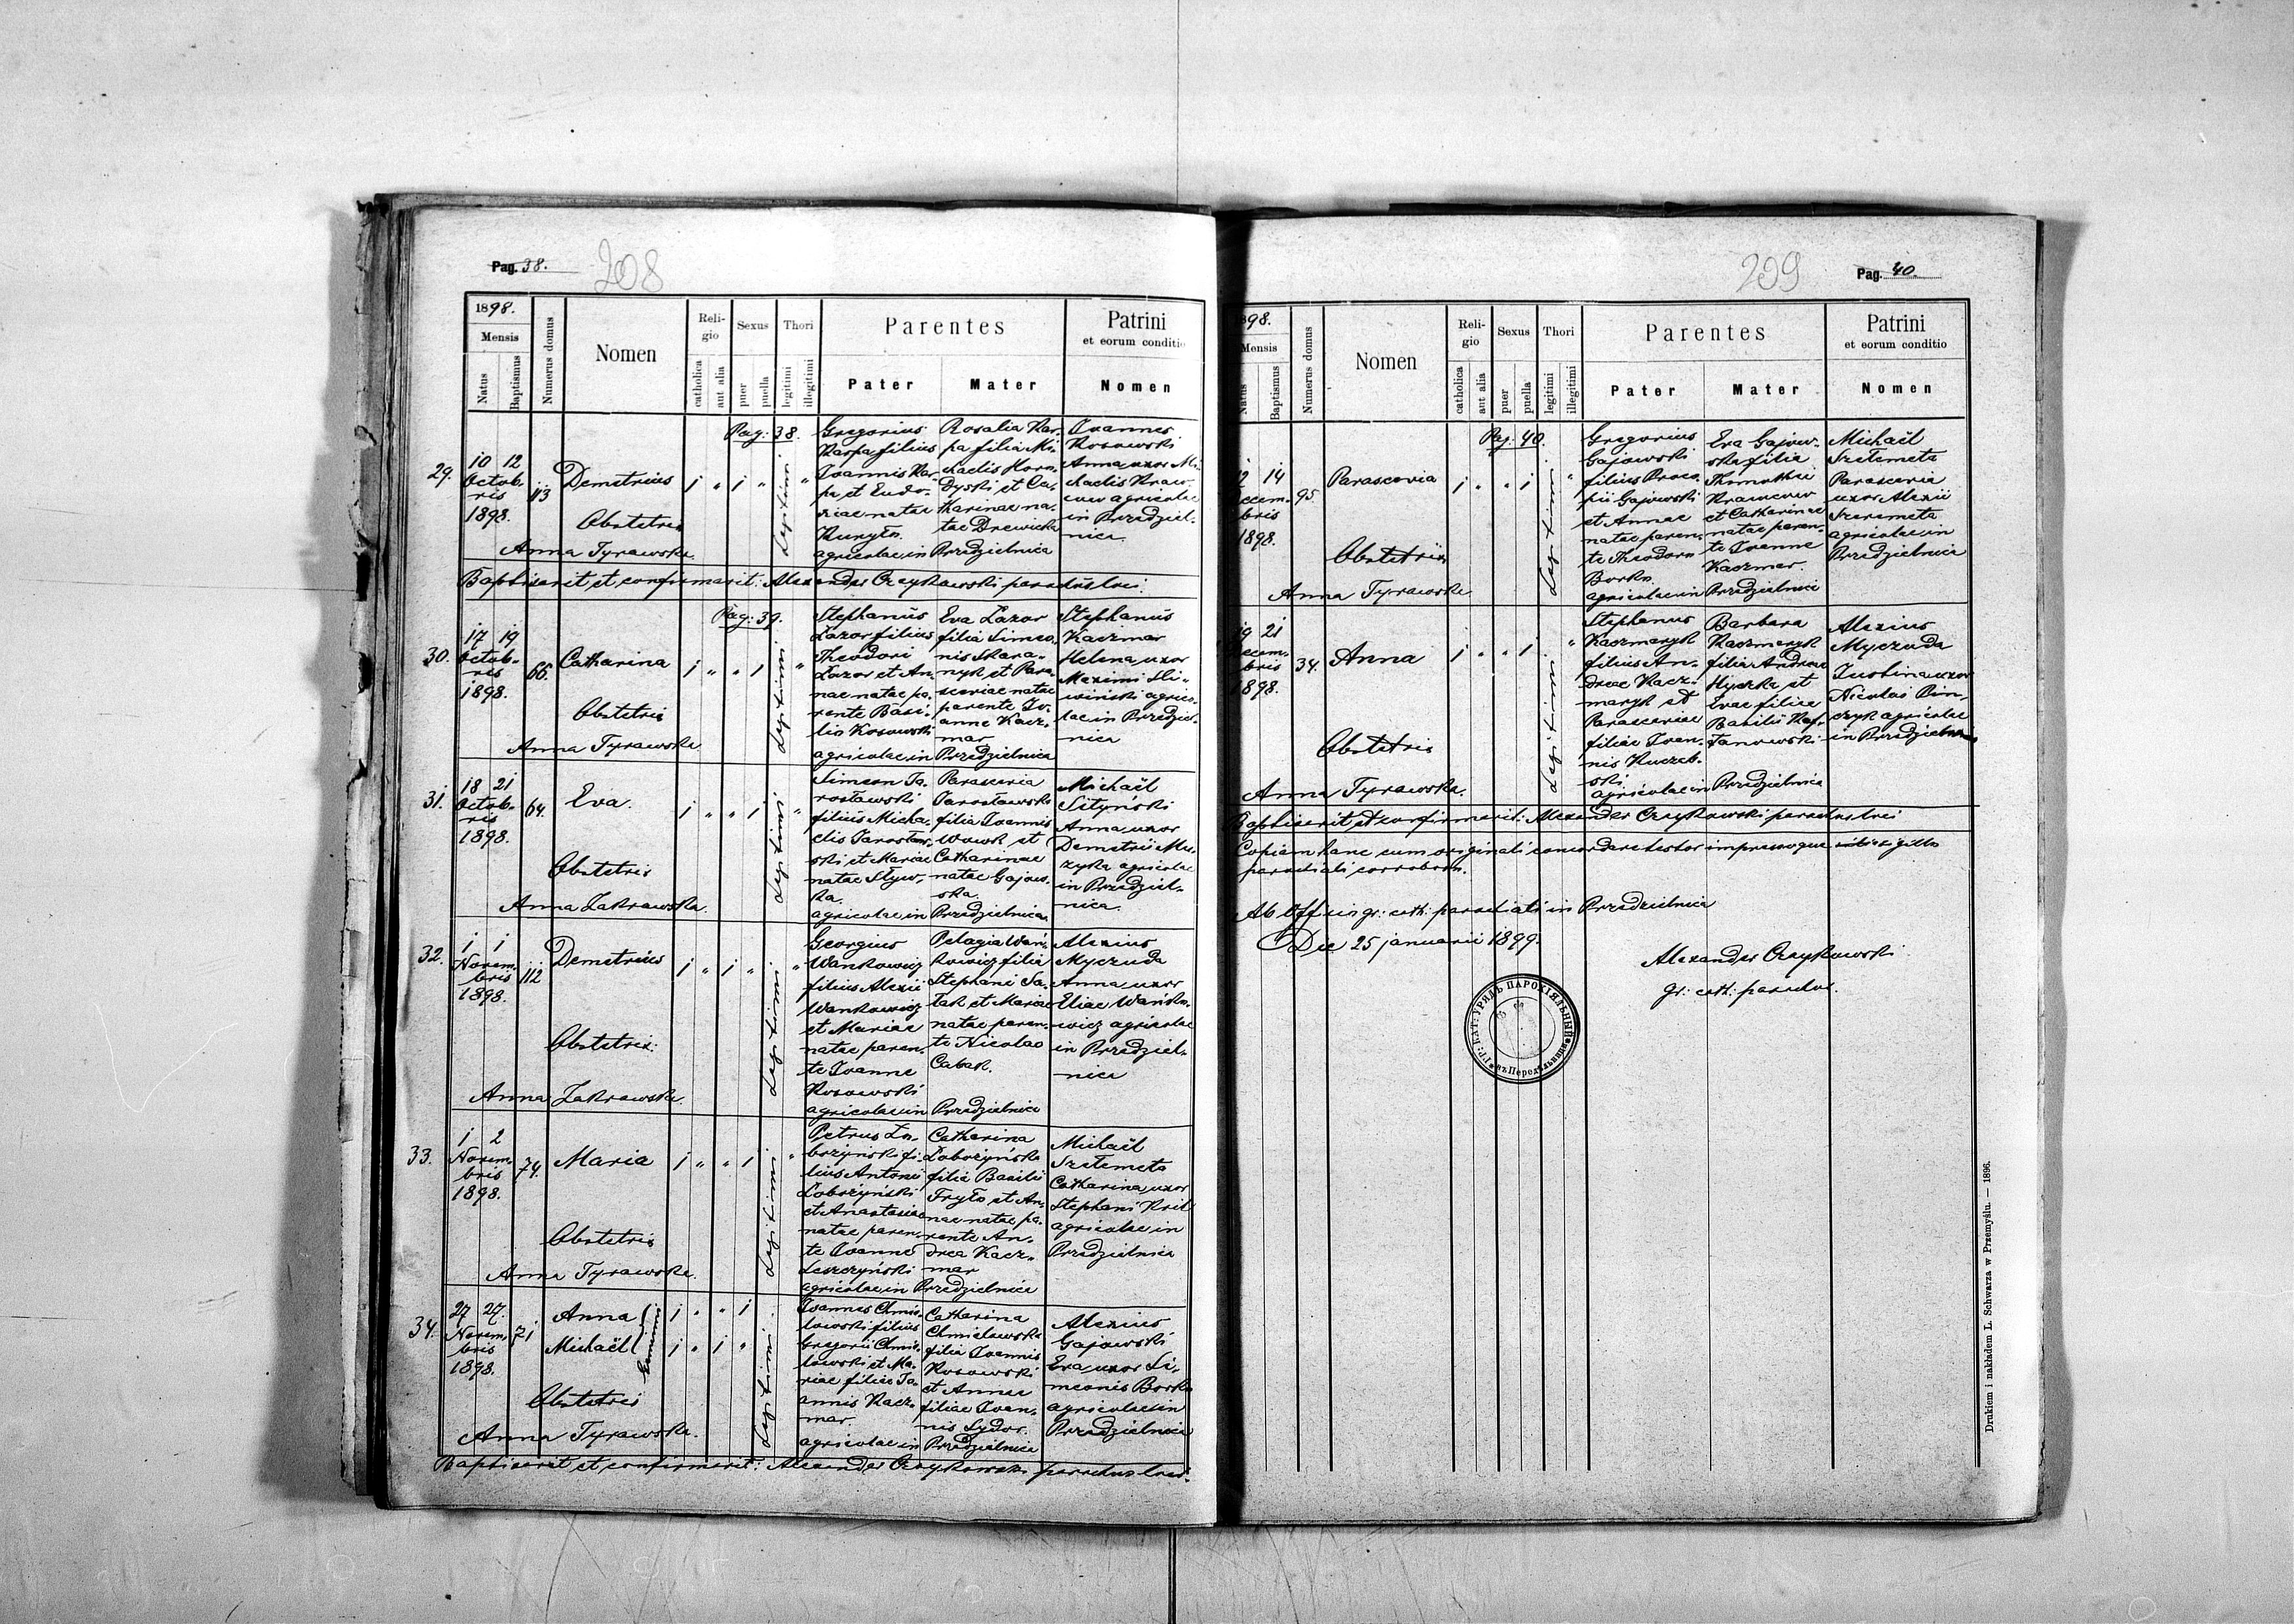 Pag. 38.
208
1898.
Mensis
Natus
Baptismus
Numerus domus
Nomen
Reli-
gio
catholica
aut alia
Sexus
puer
puella
Thori
legitimi
illegitimi
Parentes
Pater
Mater
Patrini
et eorum conditio
Nomen
29.
10 12
Octob-
ris
1898.
113
Demetrius
Obstetrix
Anna Tyrawska
Pag: 38.
Legitimi
Gregorius
Karpa filius
Joannis Kar-
pa et Eudo-
xiae natae
Kuryło.
Rosalia Kar-
pa filia Mi-
chaelis Horo-
dyski et Ca-
tharinae na-
tae Drewicka
agricolae in Przedzielnica
Joannes
Kosowski
Anna uxor Mi-
chaelis Kraw-
cow agricolae
in Przedziel-
nica.
Baptisavit et confirmavit: Alexander Czaykowski parochus loci:
30.
17 19
Octob-
ris
1898.
66.
Catharina
Obstetrix
Anna Tyrawska
Pag: 39.
Legitimi
Stephanus
Lazor filius
Theodori
Lazor et An-
nae natae pa-
rente Basi-
lio Kosowski
Eva Lazor
filia Simeo-
nis Skara-
nyk et Para-
sceviae natae
parente Jo-
anne Kacz-
mar
agricolae in Przedzielnica
Stephanus
Kaczmar
Helena uxor
Maximi Sli-
wiński agrico-
lae in Przedziel-
nica
31.
18 21
Octob-
ris
1898.
64.
Eva.
Obstetrix
Anna Zakrawska.
Legitimi
Simeon Ja-
rosławski
filius Micha-
elis Jarosław-
ski et Mariae
natae Slyw-
ka.
Parascevia
Jarosławska
filia Joannis
Wowk et
Catharinae
natae Gajow-
ska.
agricolae in Przedzielnica.
Michaël
Sityński
Anna uxor
Demetrii Mu-
zyka agricolae
in Przedziel-
nica.
32.
1 1
Novem-
bris
1898.
112
Demetrius
Obstetrix:
Anna Zakrawska.
Legitimi
Georgius
Wankowicz
filius Alexii
Wankowicz
et Mariae
natae paren-
te Joanne
Kosowski
Pelagia Wań-
kowicz filia
Stephani Sa-
lak et Mariae
natae paren-
te Nicolao
Cabak.
agricolae in Przedzielnica
Alexius
Myczuda
Anna uxor
Eliae Wańko-
wicz agricolae
in Przedziel-
nica
33.
1 2
Novem-
bris
1898.
74.
Maria
Obstetrix
Anna Tyrawska.
Legitimi
Petrus Ło-
bożyński fi-
lius Antonii
Łobożyński
et Anastasiae
natae paren-
te Joanne
Leszczyński
Catharina
Łobożyńska
filia Basilii
Tryło et An-
nae natae pa-
rente An-
drea Kacz-
mar
agricolae in Przedzielnica
Michaël
Szełemeta
Catharina uxor
Stephani Kril
agricolae in
Przedzielnica
34.
27 27.
Novem-
bris
1898.
71
Anna
Michaël
Gemini
Obstetrix
Anna Tyrawska.
Legitimi
Joannes Chmie-
lowski filius
Gregorii Chmie-
lowski et Ma-
riae filiae Jo-
annis Kacz-
mar.
Catharina
Chmielowska
filia Joannis
Kosowski
et Annae
filiae Joan-
nis Sydor.
agricolae in Przedzielnica
Alexius
Gajowski
Eva uxor Si-
meonis Borko
agricolae in
Przedzielnica
Baptisavit et confirmavit: Alexander Czaykowski parochus loci.
209
Pag. 40.
898.
Mensis
Natus
Baptismus
Numerus domus
Nomen
Reli-
gio
catholica
aut alia
Sexus
puer
puella
Thori
legitimi
illegitimi
Parentes
Pater
Mater
Patrini
et eorum conditio
Nomen
12 14
Decem-
bris
1898.
95.
Parascevia
Obstetrix
Anna Tyrawska
Pag. 40.
Legitimi
Gregorius
Gajowski
filius Proco-
pii Gajowski
et Annae
natae paren-
te Theodoro
Borko.
Eva Gajow-
ska filia
Thimothei
Krawcow
et Catharinae
natae paren-
te Joanne
Kaczmar.
agricolae in Przedzielnica
Michaël
Szełemeta
Parascevia
uxor Alexii
Szeremeta
agricolae in
Przedzielnica
19 21
Decem-
bris
1898.
34.
Anna
Obstetrix
Anna Tyrawska.
Legitimi
Stephanus
Kaczmaryk
filius An-
dreae Kacz-
maryk et
Parasceviae
filiae Joan-
nis Kuczeb-
ski.
Barbara
Kaczmaryk
filia Andreae
Hyczka et
Evae filiae
Basilii Kaf-
tanowski
agricolae in Przedzielnica
Alexius
Myczuda
Justina uxor
Nicolai Bin-
czyk agricolae
in Przedzielnica
Baptisavit et confirmavit: Alexander Czaykowski parochus loci
Copiam hanc cum originali concordare testor impressoque sibi sigillo
parochiali corroboro.
Ab Officio gr: cath: parochiali in Przedzielnica
Die 25 januarii 1899.
Alexander Czaykowski
gr: cath: parochus.
ГР: КАТ: УРЯДЪ ПАРОХІЯЛЬНЫЙ
Drukiem i nakładem L. Schwarza w Przemyślu. — 1896.